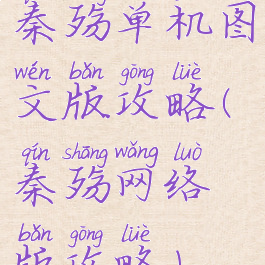 秦殇单机图
wén bǎn gōng lüè
文版攻略(
qín shāng wǎng luò
秦殇网络
bǎn gōng lüè
版攻略)